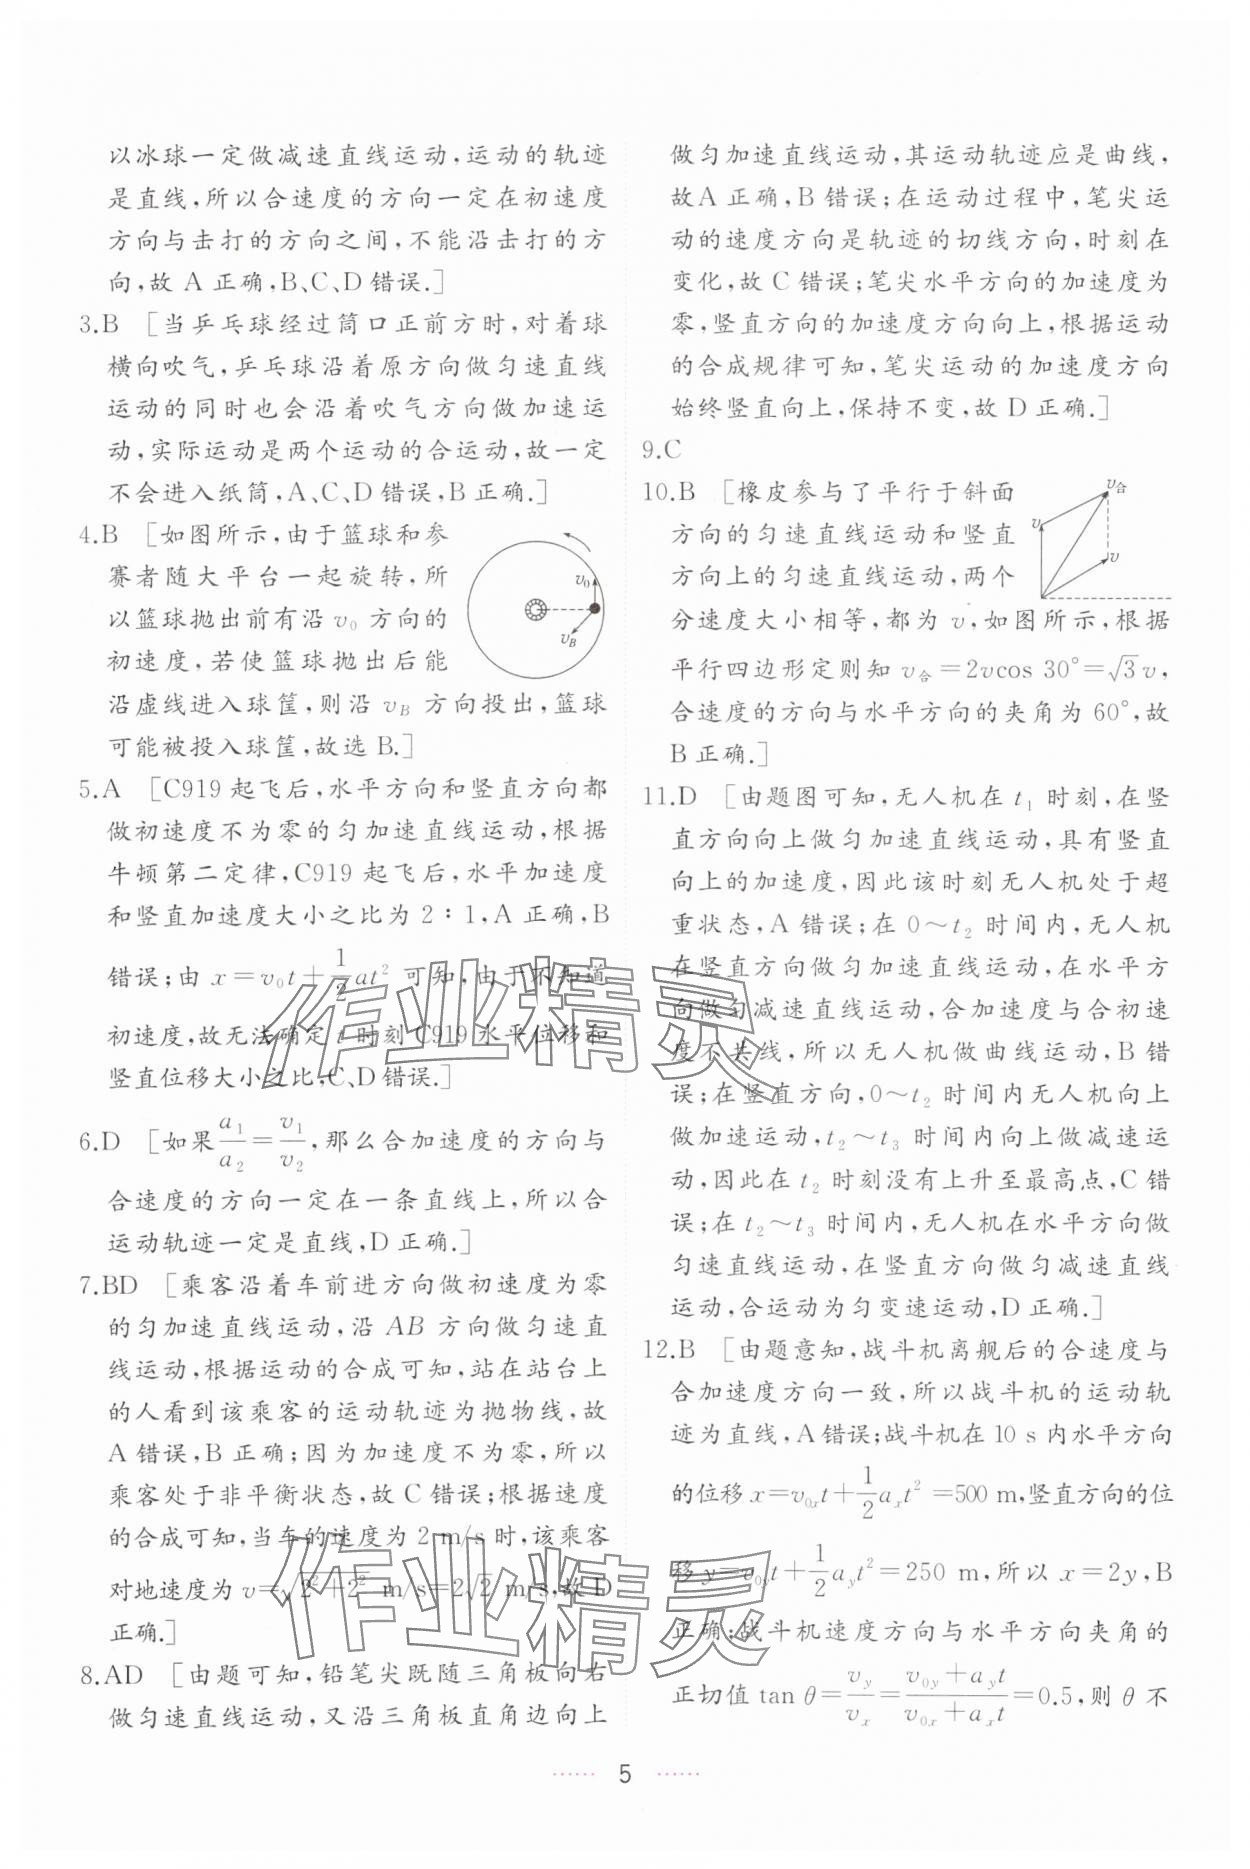 以冰球一定做减速直线运动,运动的轨迹
是直线,所以合速度的方向一定在初速度
方向与击打的方向之间,不能沿击打的方
向,故 A 正确,B、C、D错误.]
3.B [当乒乓球经过筒口正前方时,对着球
横向吹气,乒乓球沿着原方向做匀速直线
运动的同时也会沿着吹气方向做加速运
动,实际运动是两个运动的合运动,故一定
不会进入纸筒,A、C、D错误,B正确.]
4.B [如图所示,由于篮球和参
赛者随大平台一起旋转,所
以篮球抛出前有沿 v₀ 方向的
初速度,若使篮球抛出后能
沿虚线进入球筐,则沿 v_B 方向投出,篮球
可能被投入球筐,故选 B.]
v₀
v_B
5.A [C919起飞后,水平方向和竖直方向都
做初速度不为零的匀加速直线运动,根据
牛顿第二定律,C919起飞后,水平加速度
和竖直加速度大小之比为 2∶1,A 正确,B
错误;由 x=v₀t+1/2at² 可知,由于不知道
初速度,故无法确定 t 时刻C919水平位移和
竖直位移大小之比,C、D错误.]
6.D [如果a₁/a₂=v₁/v₂,那么合加速度的方向与
合速度的方向一定在一条直线上,所以合
运动轨迹一定是直线,D正确.]
7.BD [乘客沿着车前进方向做初速度为零
的匀加速直线运动,沿 AB 方向做匀速直
线运动,根据运动的合成可知,站在站台上
的人看到该乘客的运动轨迹为抛物线,故
A错误,B正确;因为加速度不为零,所以
乘客处于非平衡状态,故C错误;根据速度
的合成可知,当车的速度为 2 m/s时,该乘客
对地速度为 v=√(2²+2²) m/s=2√2 m/s,故D
正确.]
8.AD [由题可知,铅笔尖既随三角板向右
做匀速直线运动,又沿三角板直角边向上
做匀加速直线运动,其运动轨迹应是曲线,
故A正确,B错误;在运动过程中,笔尖运
动的速度方向是轨迹的切线方向,时刻在
变化,故C错误;笔尖水平方向的加速度为
零,竖直方向的加速度方向向上,根据运动
的合成规律可知,笔尖运动的加速度方向
始终竖直向上,保持不变,故D正确.]
9.C
10.B [橡皮参与了平行于斜面
方向的匀速直线运动和竖直
方向上的匀速直线运动,两个
分速度大小相等,都为 v,如图所示,根据
平行四边形定则知 v合=2vcos 30°=√3v,
合速度的方向与水平方向的夹角为60°,故
B正确.]
v合
v
v
11.D [由题图可知,无人机在 t₁ 时刻,在竖
直方向向上做匀加速直线运动,具有竖直
向上的加速度,因此该时刻无人机处于超
重状态,A 错误;在 0～t₂ 时间内,无人机
在竖直方向做匀加速直线运动,在水平方
向做匀减速直线运动,合加速度与合初速
度不共线,所以无人机做曲线运动,B错
误;在竖直方向,0～t₂ 时间内无人机向上
做加速运动,t₂～t₃ 时间内向上做减速运
动,因此在 t₂ 时刻没有上升至最高点,C错
误;在 t₂～t₃ 时间内,无人机在水平方向做
匀速直线运动,在竖直方向做匀减速直线
运动,合运动为匀变速运动,D正确.]
12.B [由题意知,战斗机离舰后的合速度与
合加速度方向一致,所以战斗机的运动轨
迹为直线,A错误;战斗机在10 s内水平方向
的位移 x=v₀ₓt+1/2aₓt²=500 m,竖直方向的位
移 y=v₀yt+1/2a_yt²=250 m,所以 x=2y,B
正确;战斗机速度方向与水平方向夹角的
正切值 tan θ=v_y/vₓ=(v₀y+a_yt)/(v₀ₓ+aₓt)=0.5,则 θ 不
5
作业精灵
作业精灵